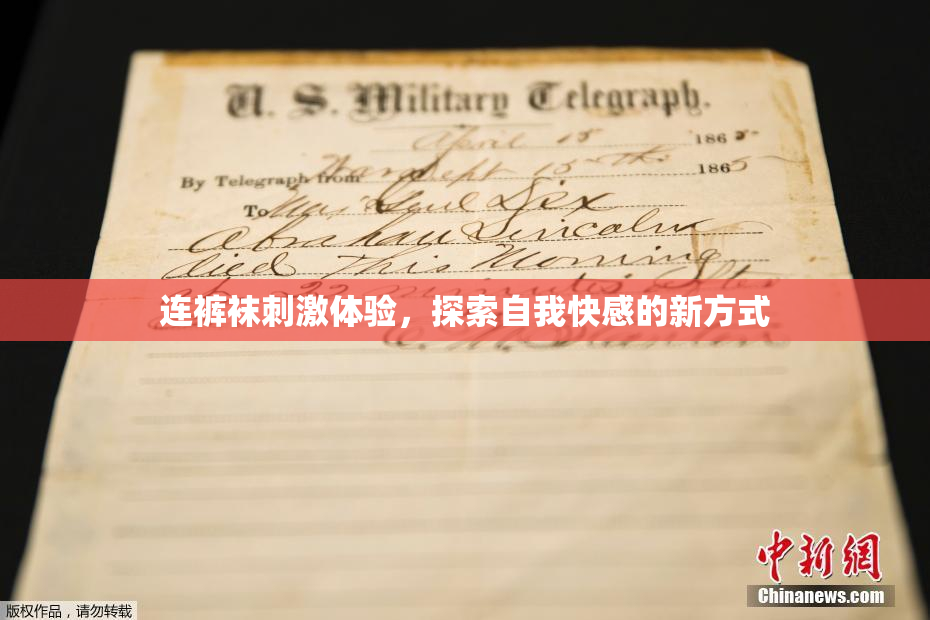 U. S. Military Telegraph.
April 15 1865
By Telegraph from War Dept 15th 1865
To Maj Genl Dix
Abraham Lincoln
died This Morning
at 22 minutes after
连裤袜刺激体验，探索自我快感的新方式
E. M. Stanton
中新网
Chinanews.com
版权作品，请勿转载